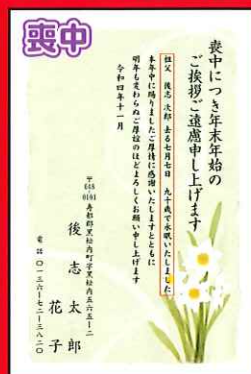 喪中
喪中につき年末年始の
ご挨拶ご遠慮申し上げます
祖父 後志 次郎 去る七月七日 九十歳で永眠いたしました
本年中に賜りましたご厚情に感謝いたしますとともに
明年も変わらぬご厚誼のほどよろしくお願い申し上げます
令和四年十一月
〒048-0101 寿都郡黒松内町字黒松内五六五ー二
後志 太郎
花子
電話 〇一三六ー七二ー三八二〇